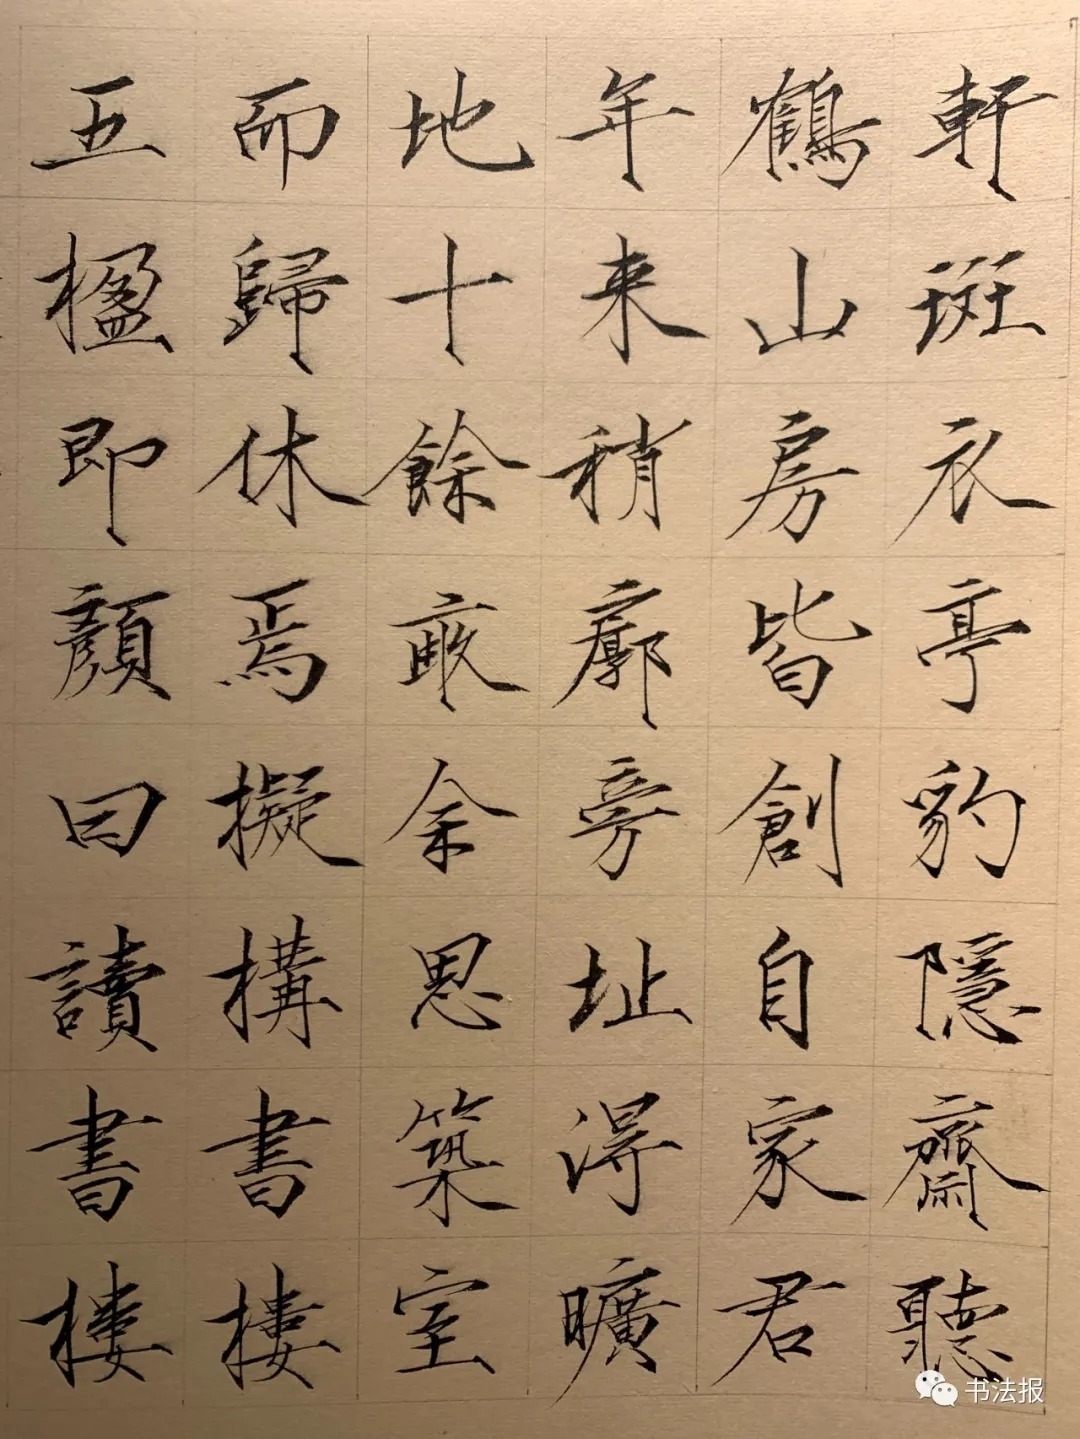 軒斑衣亭豹隱齋聽
鶴山房皆創自家君
年来稍廓旁址得曠
地十餘畝余思築室
而歸休焉擬構書樓
五楹即顏曰讀書樓
书法报